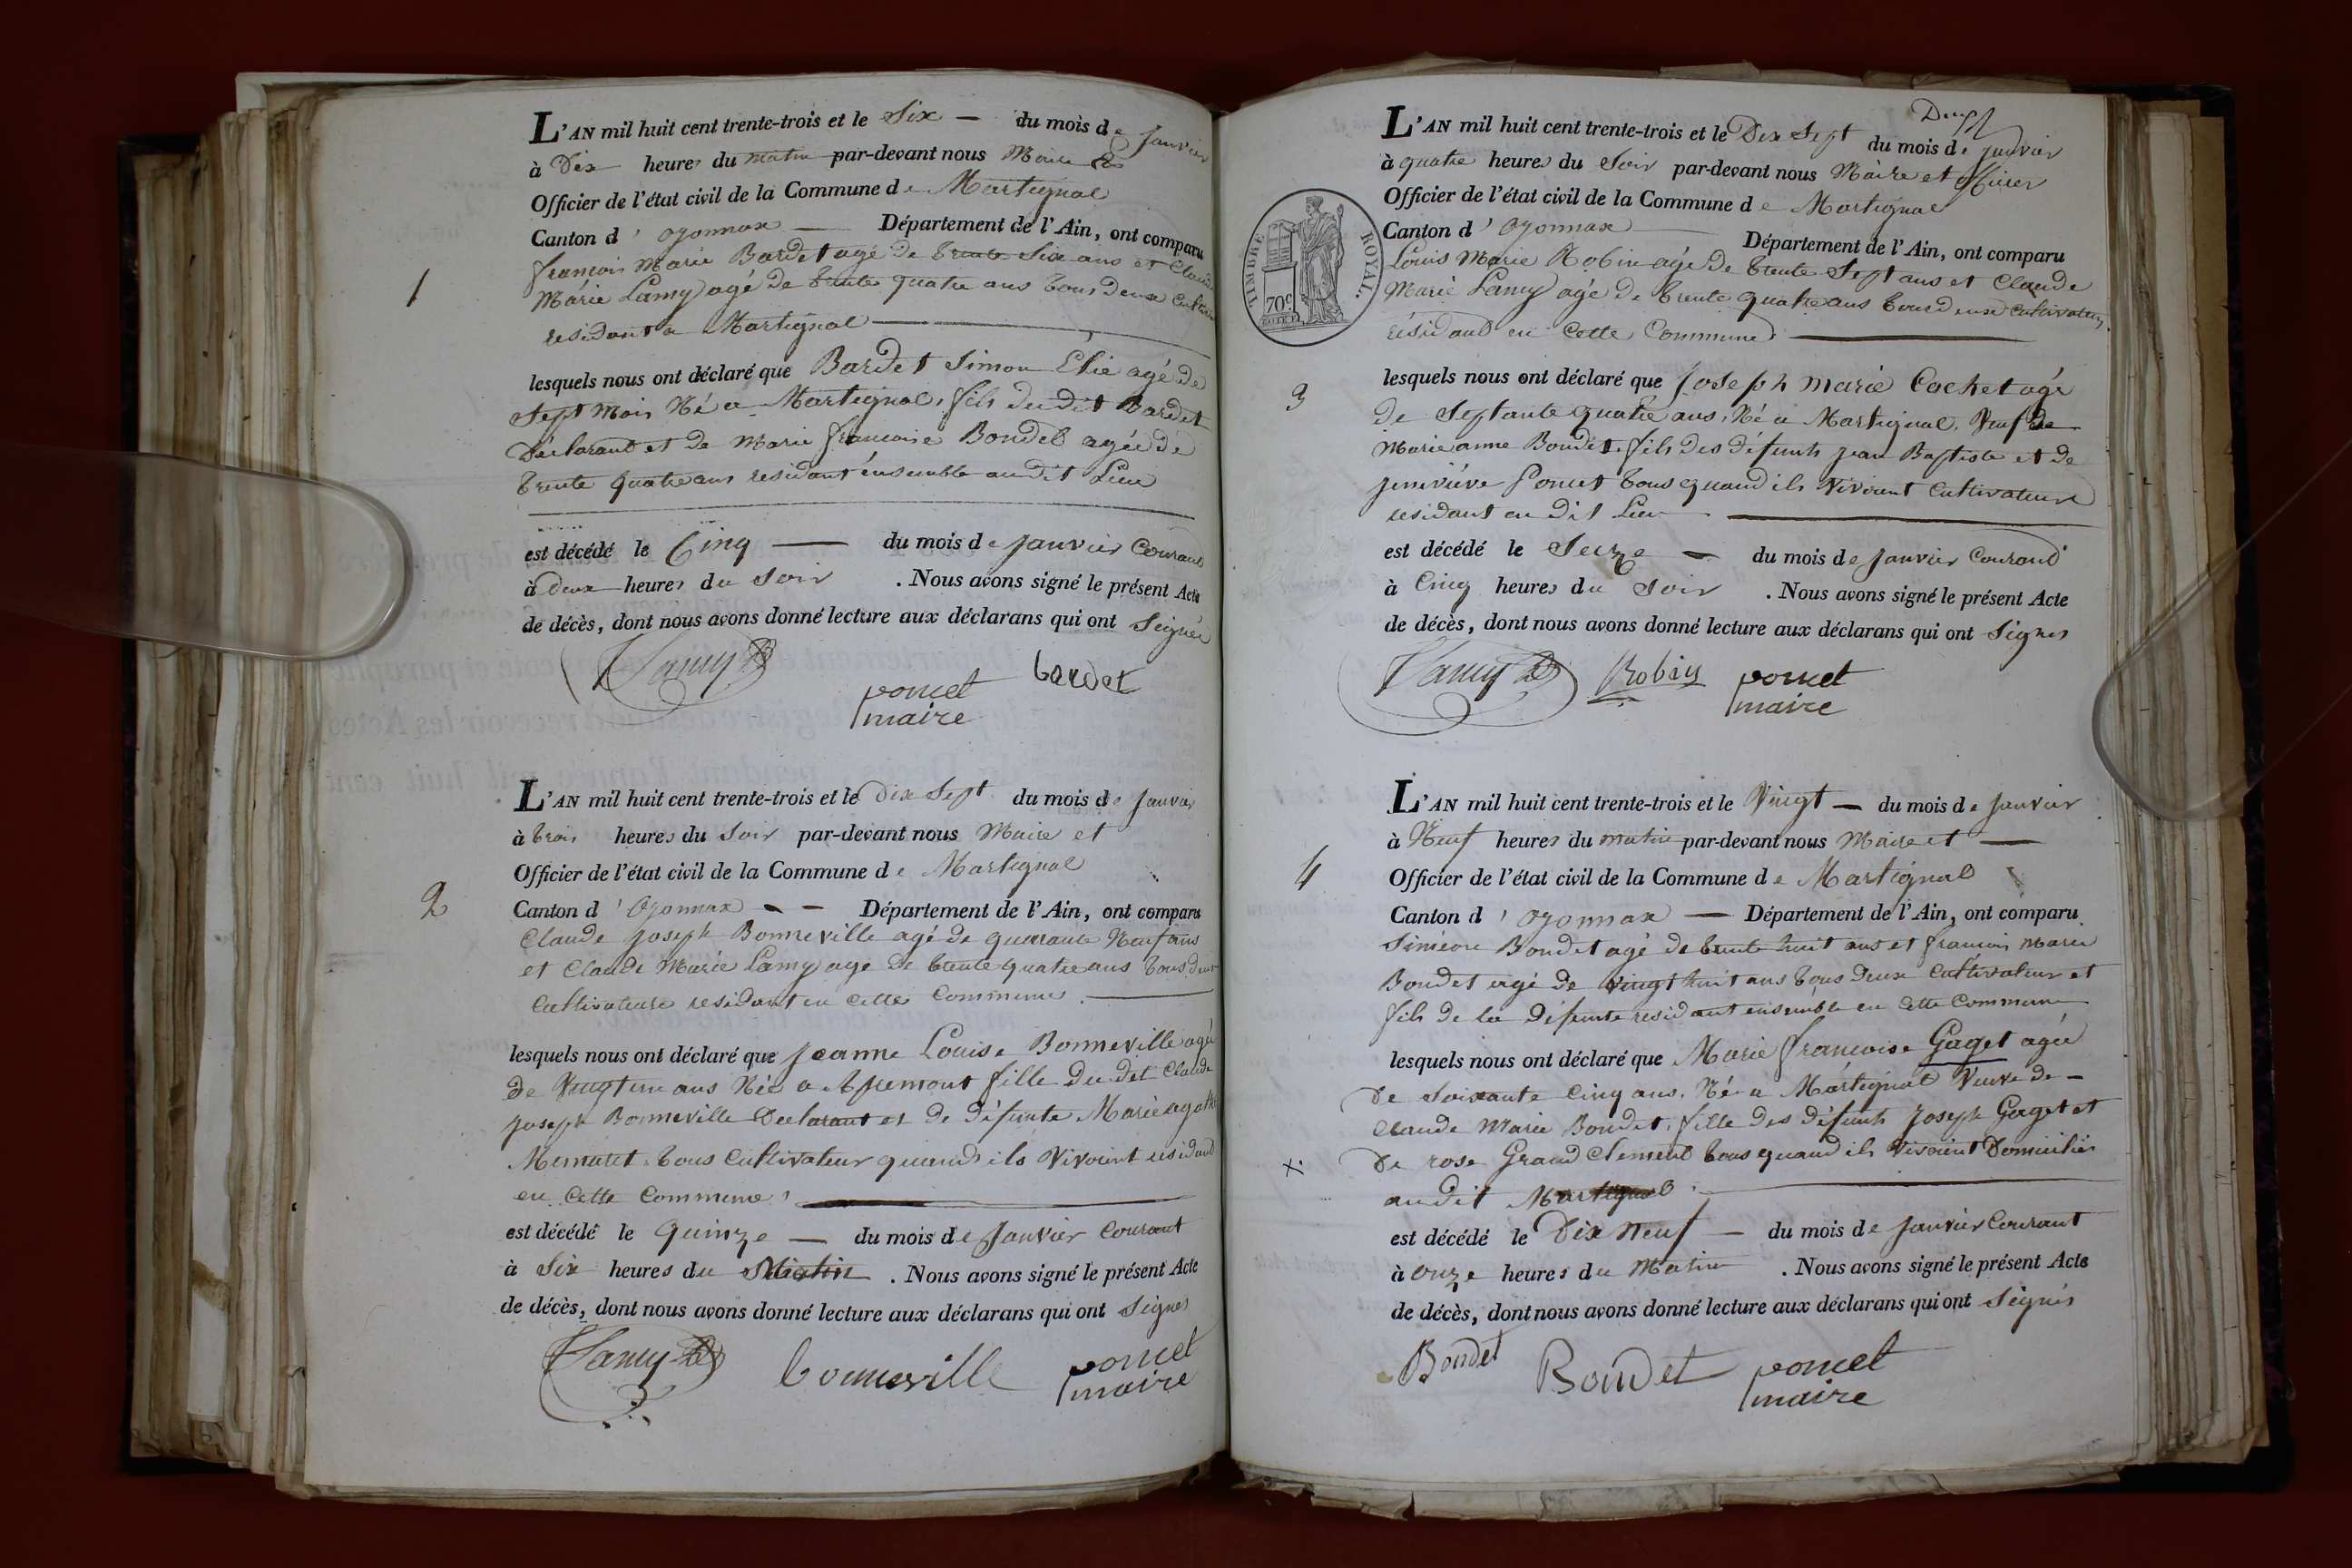 L'AN mil huit cent trente-trois et le Six — du mois de Janvier
à Dix heures du matin par-devant nous Maire &
Officier de l'état civil de la Commune de Martignat
Canton d'oyonnax — Département de l'Ain, ont comparu
françois Marie Bardet agé de trente Six ans et Claude
Marie Lamy agé de trente quatre ans tous deux
residant a Martignat
1
lesquels nous ont déclaré que Bardet Simon Élie agé de
Sept mois Né a Martignat, fils dudit Bardet
Déclarant et de Marie francoise Bondet agée de
trente quatre ans residant ensemble audit Lieu
est décédé le Cinq — du mois de Janvier Courant
à Deux heures du Soir . Nous avons signé le présent Acte
de décès, dont nous avons donné lecture aux déclarans qui ont Seignés
Lamy
poncet
maire
bardet
L'AN mil huit cent trente-trois et le Dix Sept du mois de Janvier
à trois heures du Soir par-devant nous Maire et
Officier de l'état civil de la Commune de Martignat
2
Canton d'Oyonnax — Département de l'Ain, ont comparu
Claude Joseph Bonneville agé de quarante Neuf ans
et Claude Marie Lamy agé de trente quatre ans tous deux
Cultivateurs residant en cette Commune.
lesquels nous ont déclaré que Jeanne Louise Bonneville agée
De Vingt un ans Née a Apremont fille Du dit Claude
Joseph Bonneville Declarant et de Défunte Marie agathe
tous Cultivateur quand ils Vivoint residant
en Cette Commune
est décédé le quinze — du mois de Janvier Courant
à Six heures du Matin . Nous avons signé le présent Acte
de décès, dont nous avons donné lecture aux déclarans qui ont Signés
Lamy
bonneville
poncet
maire
Deux
L'AN mil huit cent trente-trois et le Dix Sept du mois de Janvier
à quatre heures du Soir par-devant nous Maire et Officier
Officier de l'état civil de la Commune de Martignat
Canton d'Oyonnax Département de l'Ain, ont comparu
Louis Marie Robin agé De trente Sept ans et Claude
Marie Lamy agé de trente quatre ans tous deux Cultivateurs
résidant en Cette Commune
TIMBRE ROYAL.
70c
3
lesquels nous ont déclaré que Joseph Marie Cochet agé
de Septante quatre ans, Né a Martignat, Veuf De
Marie anne Bondet, fils des défunts Jean Baptiste et de
Jeniviéve Poncet tous quand ils Vivoient Cultivateurs
residant au Dit Lieu
est décédé le Seize — du mois de Janvier Courant
à Cinq heures du Soir . Nous avons signé le présent Acte
de décès, dont nous avons donné lecture aux déclarans qui ont Signes
Lamy
Robin
poncet
maire
L'AN mil huit cent trente-trois et le Vingt — du mois de Janvier
à Neuf heures du matin par-devant nous Maire et —
4
Officier de l'état civil de la Commune de Martignat
Canton d'Oyonnax — Département de l'Ain, ont comparu
Siméon Bondet agé de trente huit ans et francois Marie
Bondet agé de vingt huit ans tous Deux Cultivateur et
fils de la Défunte residant ensemble en Cette Commune
lesquels nous ont déclaré que Marie francoise Gaget agée
De Soixante Cinq ans. Né a Martignat Veuve de —
Claude Marie Bondet, fille des défunts Joseph Gaget et
x. De rose Grand Clement tous quand ils Vivoient Domiciliés
audit Martignat
est décédé le Dix Neuf — du mois de Janvier Courant
à Onze heures du Matin . Nous avons signé le présent Acte
de décès, dont nous avons donné lecture aux déclarans qui ont Signés
Bondet
Bondet
poncet
maire